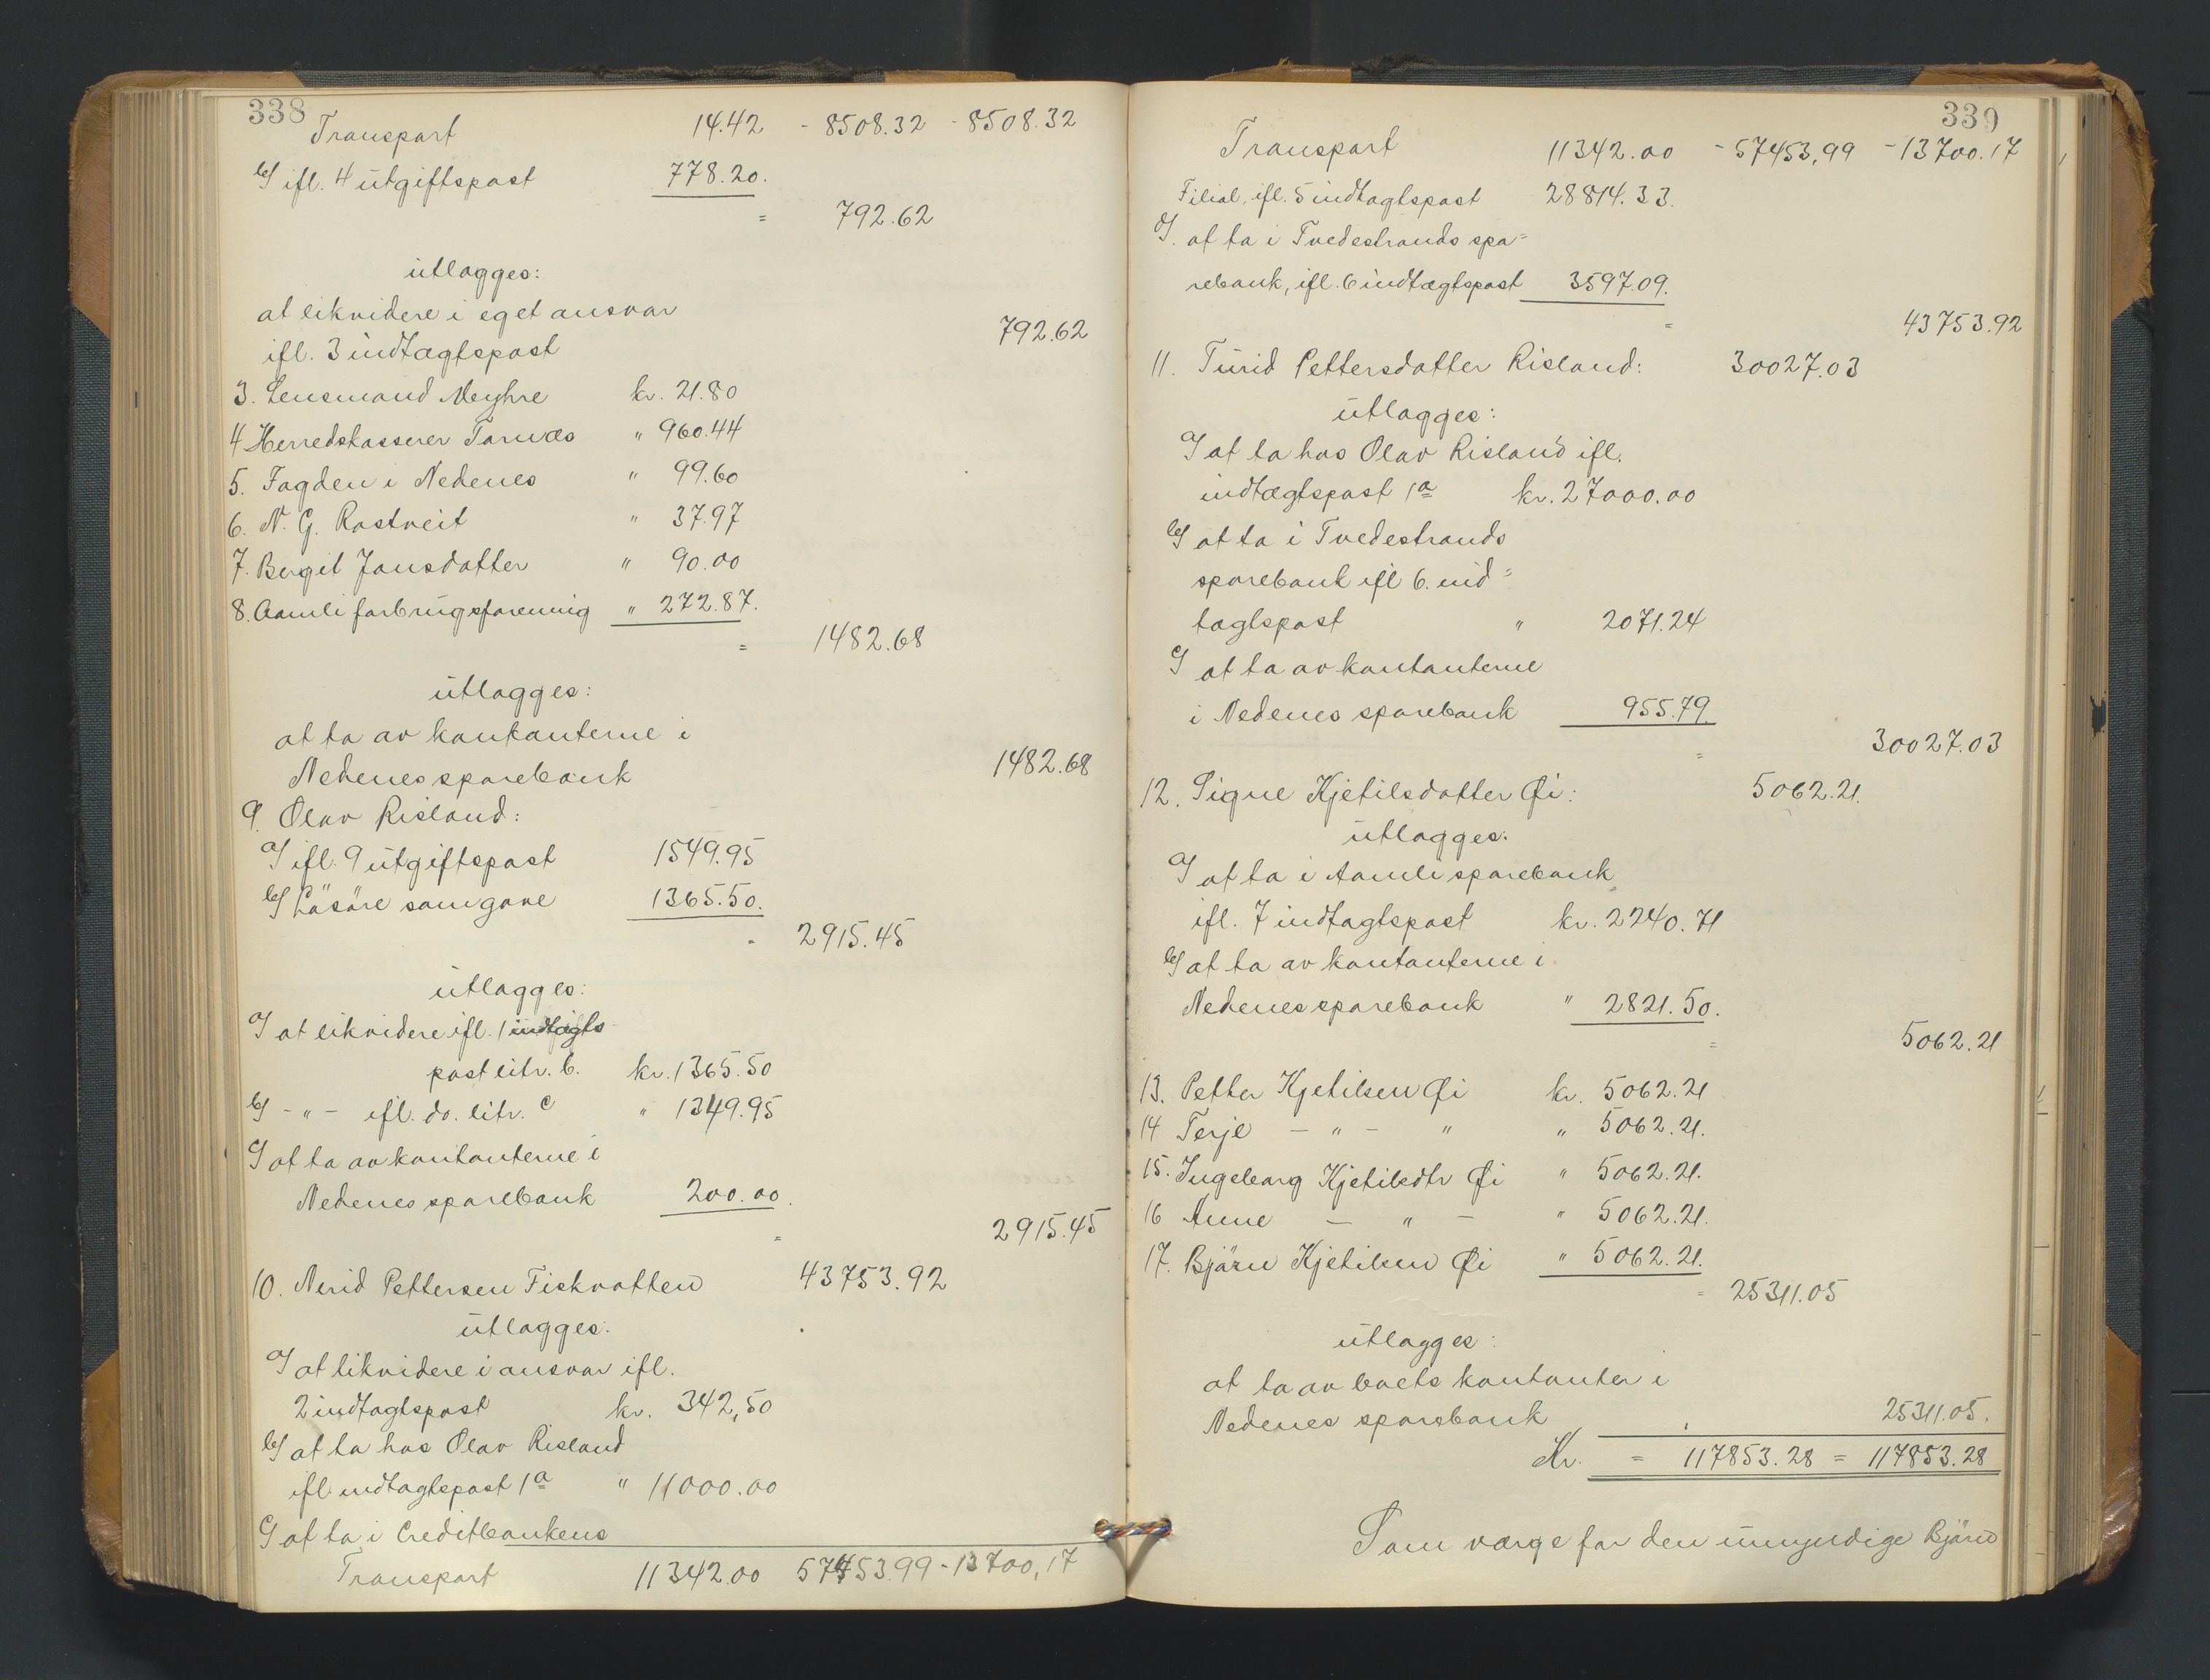 338
Transport 14.42 - 8508.32 - 8508.32
b/ ifl. 4 utgiftspost 778.20.
= 792.62
utlægges:
at likvidere i eget ansvar
ifl. 3 indtægtspost 792.62
3. Lensmand Meyhre kr. 21.80
4 Herredskasserer Tarnæs " 960.44
5. Fogden i Nedenes " 99.60
6. N. G. Rostveit " 37.97
7. Bergit Jonsdatter " 90.00
8. Aamli forbrugsforening " 272.87.
= 1482.68
utlægges:
at ta av kontanterne i
Nedenes sparebank 1482.68
9. Olav Risland:
a/ ifl. 9 utgiftspost 1549.95
b/ Løsøre som gave 1365.50.
- 2915.45
utlægges:
a/ at likvidere ifl. 1 indtægts
post litr. b. kr. 1365.50
b/ - " - ifl. do. litr. c " 1349.95
c/ at ta av kontanterne i
Nedenes sparebank 200.00.
= 2915.45
10. Nerid Pettersen Fiskvatten 43753.92
utlægges:
a/ at likvidere i ansvar ifl.
2 indtægtspost kr. 342,50
b/ at ta hos Olav Risland
ifl. indtægtspost 1a " 11000.00
c/ at ta i Creditbankens
Transport 11342.00 57453.99 - 13700,17
339
Transport 11342.00 - 57453,99 - 13700.17
Filial, ifl. 5 indtægtspost 28814.33.
d/. at ta i Tvedestrands spa=
rebank, ifl. 6 indtægtspost 3597.09.
= 43753.92
11. Turid Pettersdatter Risland: 30027.03
utlægges:
a/ at ta hos Olav Risland ifl.
indtægtspost 1a kr. 27000.00
b/ at ta i Tvedestrands
sparebank ifl 6. ind=
tægtspost " 2071.24
c/ at ta av kontanterne
i Nedenes sparebank 955.79
= 30027.03
12. Signe Kjetilsdatter Øi: 5062.21.
utlægges:
a/ at ta i Aamli sparebank
ifl. 7 indtægtspost kr. 2240.71
b/ at ta av kontanterne i
Nedenes sparebank " 2821.50.
= 5062.21
13. Petter Kjetilsen Øi kr. 5062.21
14 Terje - " - " " 5062.21.
15. Ingeborg Kjetilsdtr Øi " 5062.21.
16 Anne - " - " 5062.21.
17. Bjørn Kjetilsen Øi " 5062.21.
= 25311.05
utlægges:
at ta av boets kontanter i
Nedenes sparebank 25311.05.
Kr. = 117853.28 = 117853.28
Som værge for den umyndige Bjørn